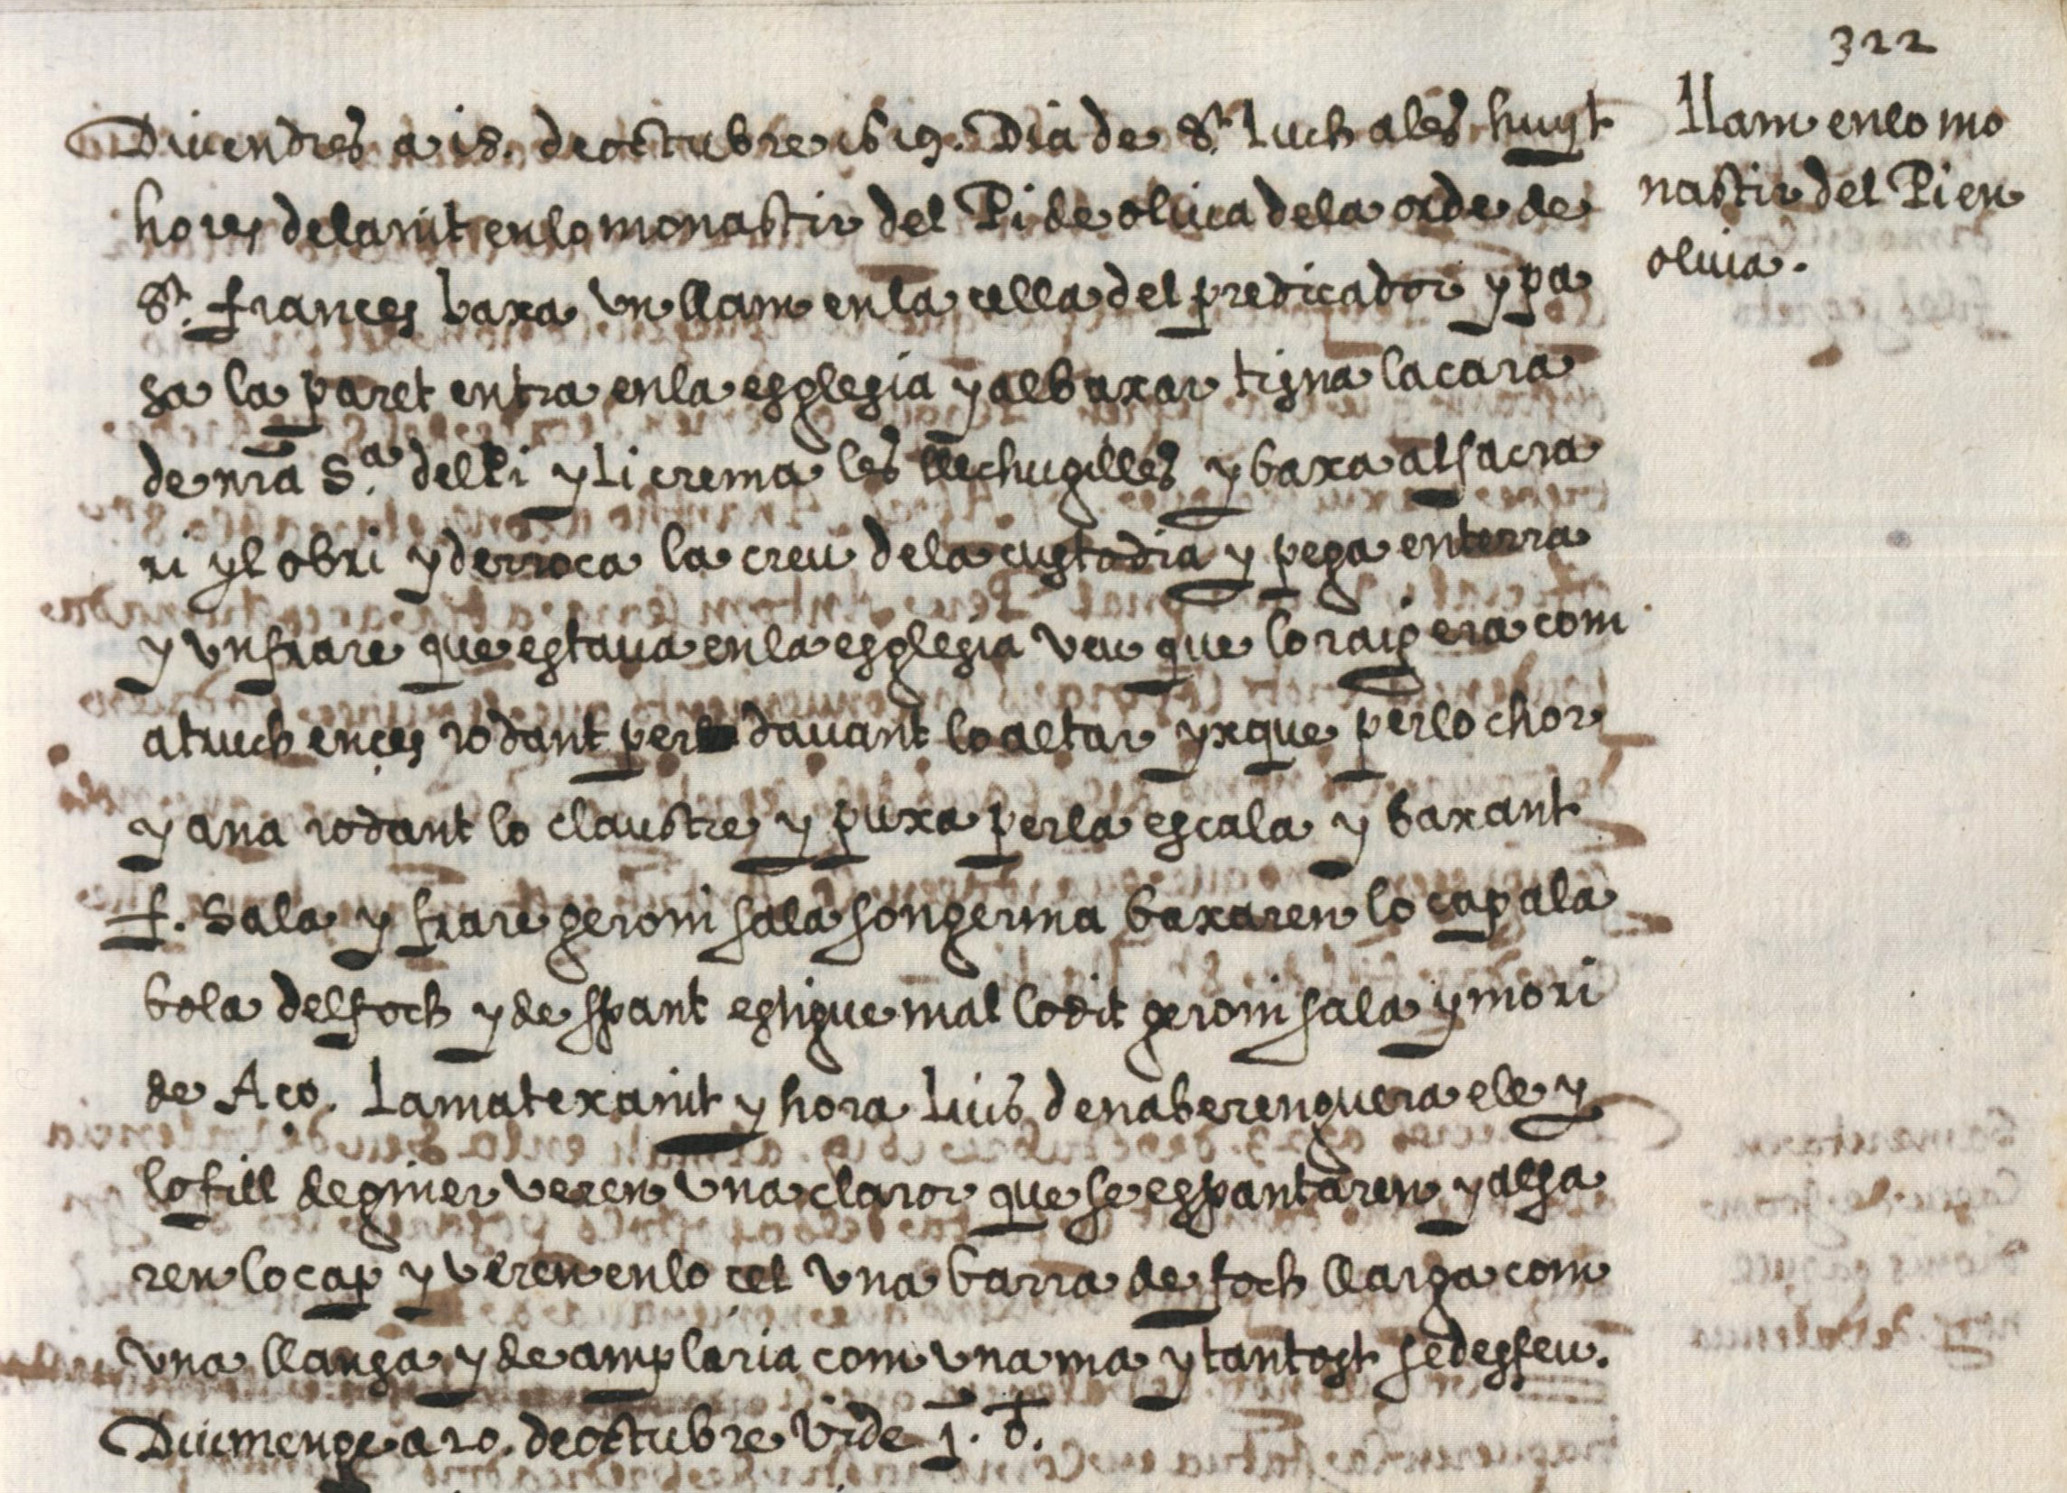 322
Diuendres a 18. de octtubre 1619. Dia de St. luch ales huyt
hores dela nit en lo monastir del Pi de oliua dela orde de
St. frances baxa vn llam en la cella del predicador y pa
sa la paret entra en la esglesia y al baxar tisna la cara
de nra Sa. del Pi y li crema les llechugilles y baxa al sacra
ri yl obri y derroca la creu dela custodia y pega en terra
y vn frare que estaua en la esglesia veu que lo raig era com
a tuech ences rodant per dauant lo altar yxque per lo chor
y ana rodant lo claustre y puxa per la escala y baxant
f. Sala y frare geroni sala son germa baxaren lo cap ala
bola del foch y de spant estigue mal lo dit geroni sala y mori
de Aço. La matexa nit y hora Luis de na berenguera ele y
lo fill de giner veren vna claror que se espantaren y alsa
ren lo cap y veren en lo cel vna barra de foch llarga com
vna llansa y de amplaria com vna ma y tantost se desfeu.
Diumenge a 20. de octtubre vide j. d.
llam en lo mo
nastir del Pi en
oliuia.